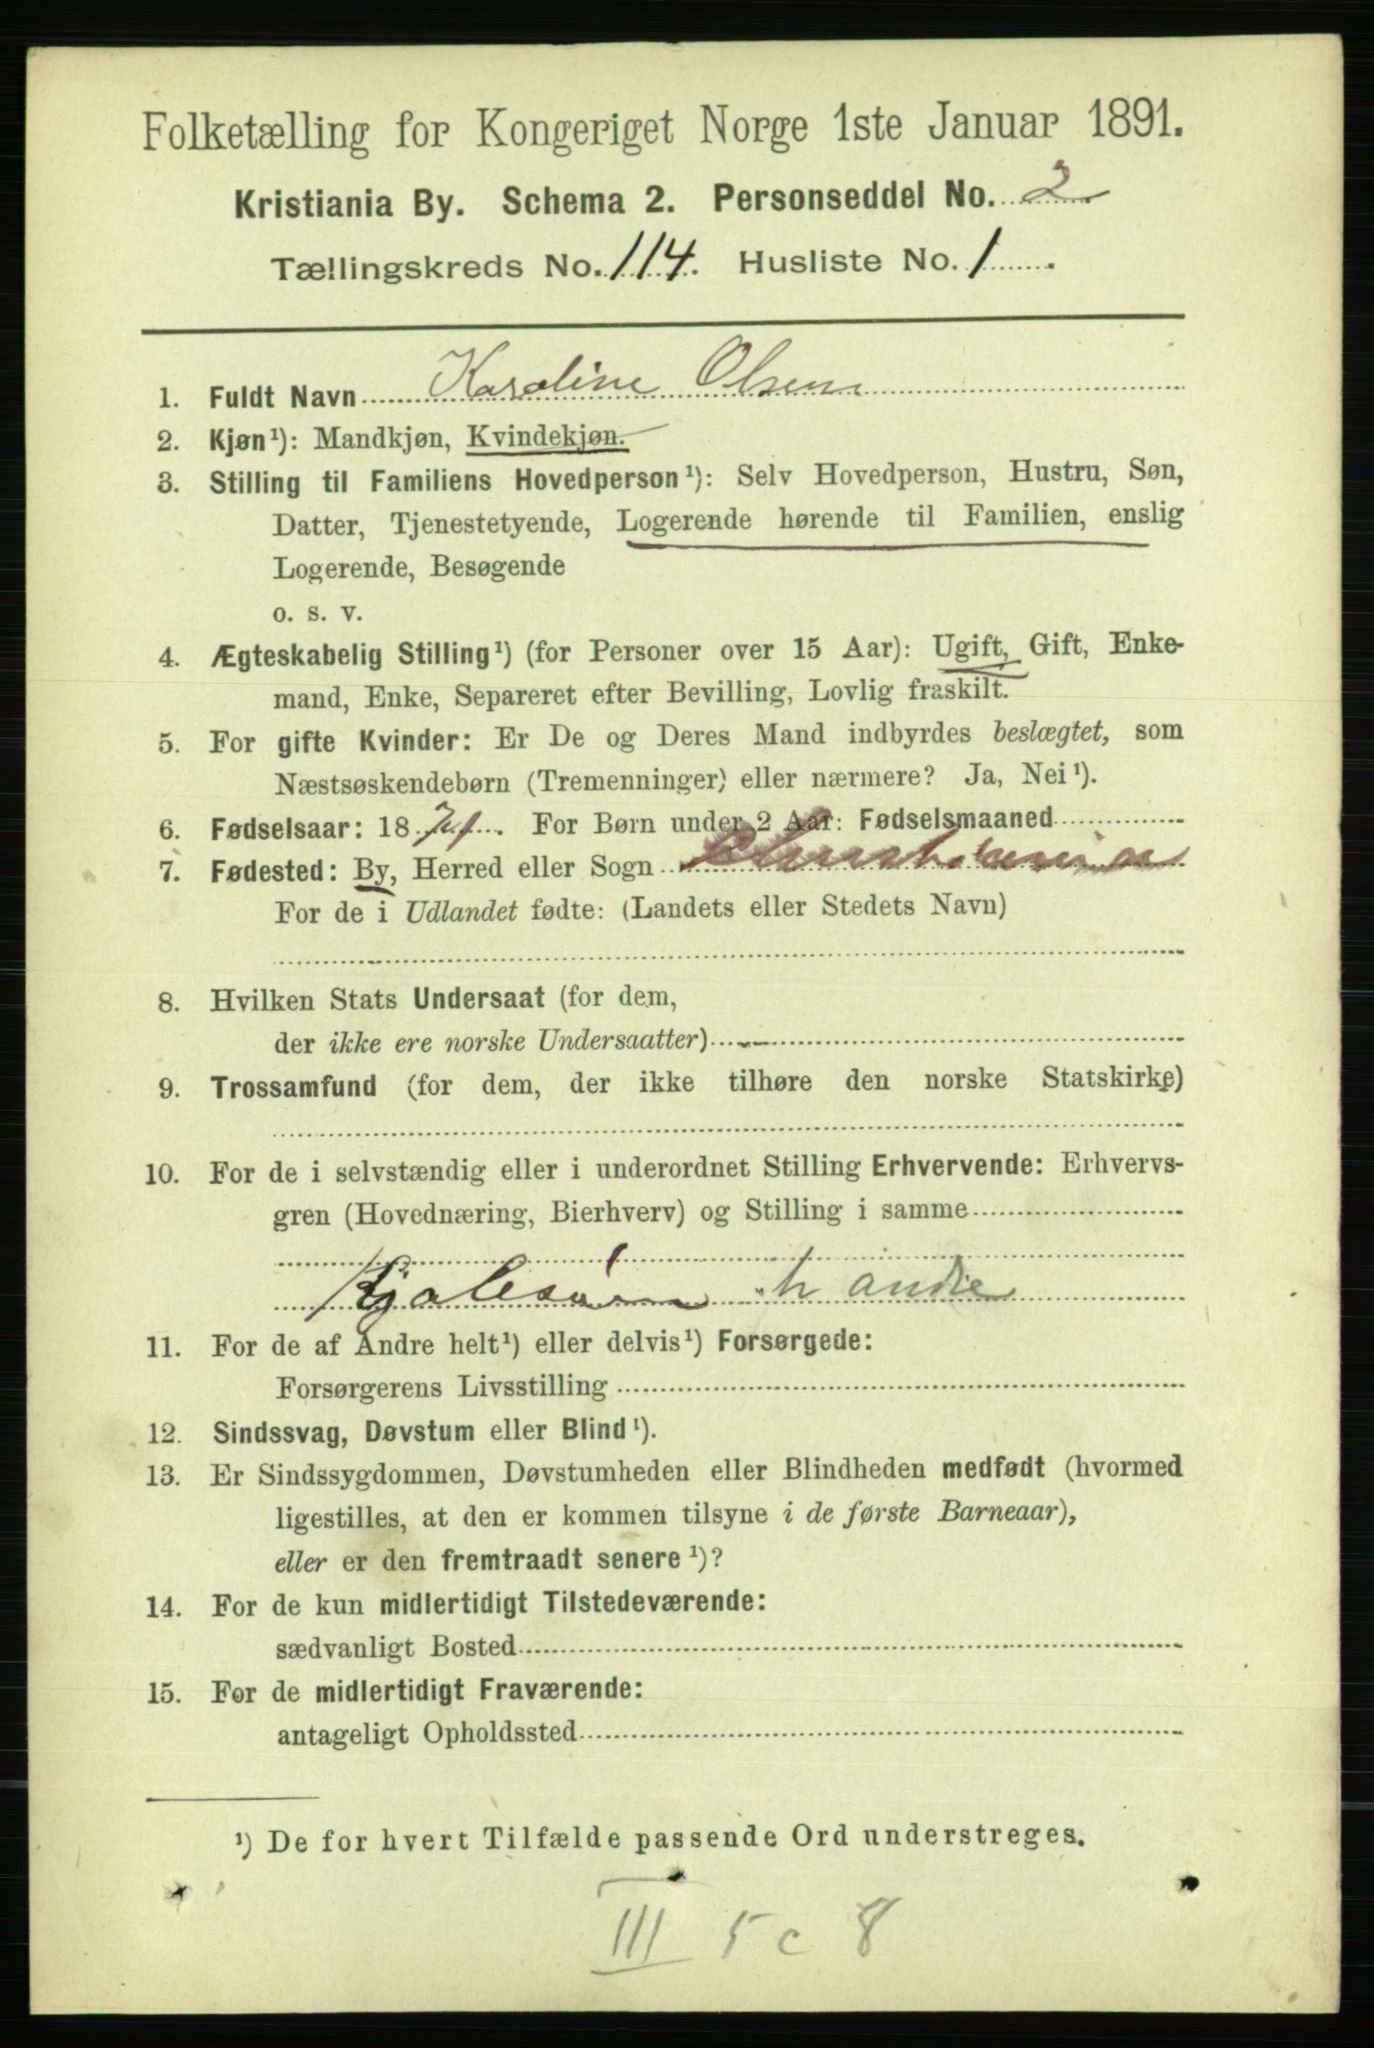 Folketælling for Kongeriget Norge 1ste Januar 1891.
Kristiania By. Schema 2. Personseddel No. 2
Tællingskreds No. 114. Husliste No. 1
1. Fuldt Navn Karoline Olsen
2. Kjøn¹): Mandkjøn, Kvindekjøn.
3. Stilling til Familiens Hovedperson¹): Selv Hovedperson, Hustru, Søn,
Datter, Tjenestetyende, Logerende hørende til Familien, enslig
Logerende, Besøgende
o. s. v.
4. Ægteskabelig Stilling¹) (for Personer over 15 Aar): Ugift, Gift, Enke-
mand, Enke, Separeret efter Bevilling, Lovlig fraskilt.
5. For gifte Kvinder: Er De og Deres Mand indbyrdes beslægtet, som
Næstsøskendebørn (Tremenninger) eller nærmere? Ja, Nei¹).
6. Fødselsaar: 18 For Børn under 2 Aar: Fødselsmaaned
7. Fødested: By, Herred eller Sogn Christiania
For de i Udlandet fødte: (Landets eller Stedets Navn)
8. Hvilken Stats Undersaat (for dem,
der ikke ere norske Undersaatter)
9. Trossamfund (for dem, der ikke tilhøre den norske Statskirke)
10. For de i selvstændig eller i underordnet Stilling Erhvervende: Erhvervs-
gren (Hovednæring, Bierhverv) og Stilling i samme
Kjolesøm h andre
11. For de af Andre helt¹) eller delvis¹) Forsørgede:
Forsørgerens Livsstilling
12. Sindssvag, Døvstum eller Blind¹).
13. Er Sindssygdommen, Døvstumheden eller Blindheden medfødt (hvormed
ligestilles, at den er kommen tilsyne i de første Barneaar),
eller er den fremtraadt senere¹)?
14. For de kun midlertidigt Tilstedeværende:
sædvanligt Bosted
15. For de midlertidigt Fraværende:
antageligt Opholdssted
¹) De for hvert Tilfælde passende Ord understreges.
III 5 c 8